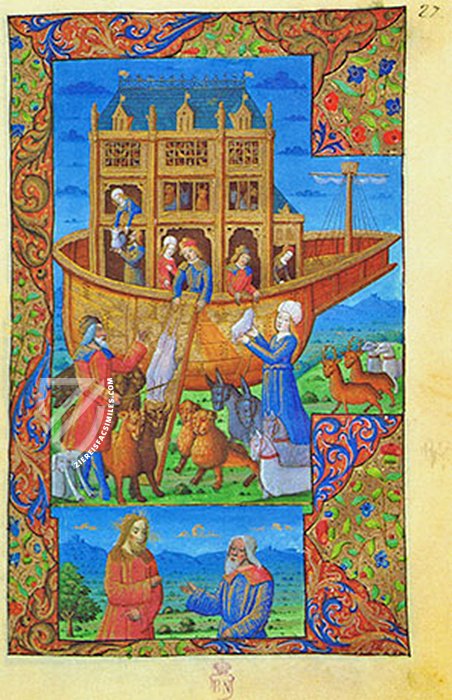 27
ZIEREISFACSIMILES.COM
BN